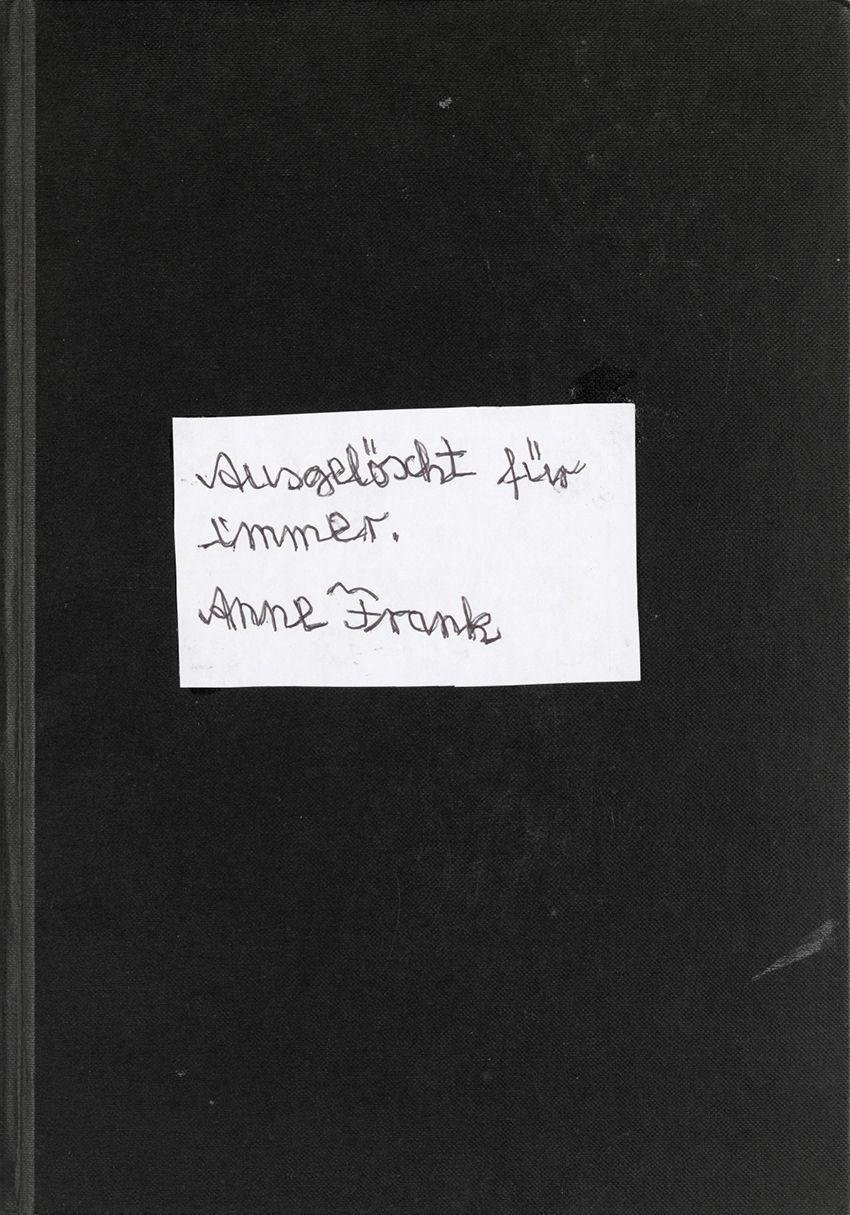 Ausgelöscht für
immer.
Anne Frank